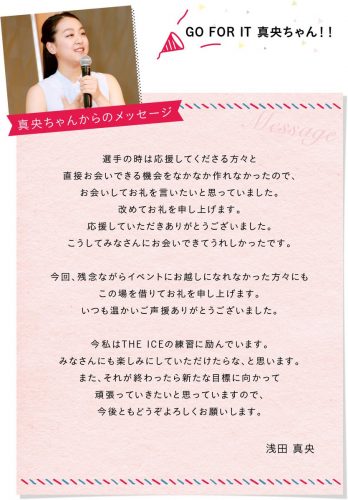 GO FOR IT 真央ちゃん！！
真央ちゃんからのメッセージ
Message
選手の時は応援してくださる方々と
直接お会いできる機会をなかなか作れなかったので、
お会いしてお礼を言いたいと思っていました。
改めてお礼を申し上げます。
応援していただきありがとうございました。
こうしてみなさんにお会いできてうれしかったです。
今回、残念ながらイベントにお越しになれなかった方々にも
この場を借りてお礼を申し上げます。
いつも温かいご声援ありがとうございました。
今私はTHE ICEの練習に励んでいます。
みなさんにも楽しみにしていただけたらな、と思います。
また、それが終わったら新たな目標に向かって
頑張っていきたいと思っていますので、
今後ともどうぞよろしくお願いします。
浅田 真央